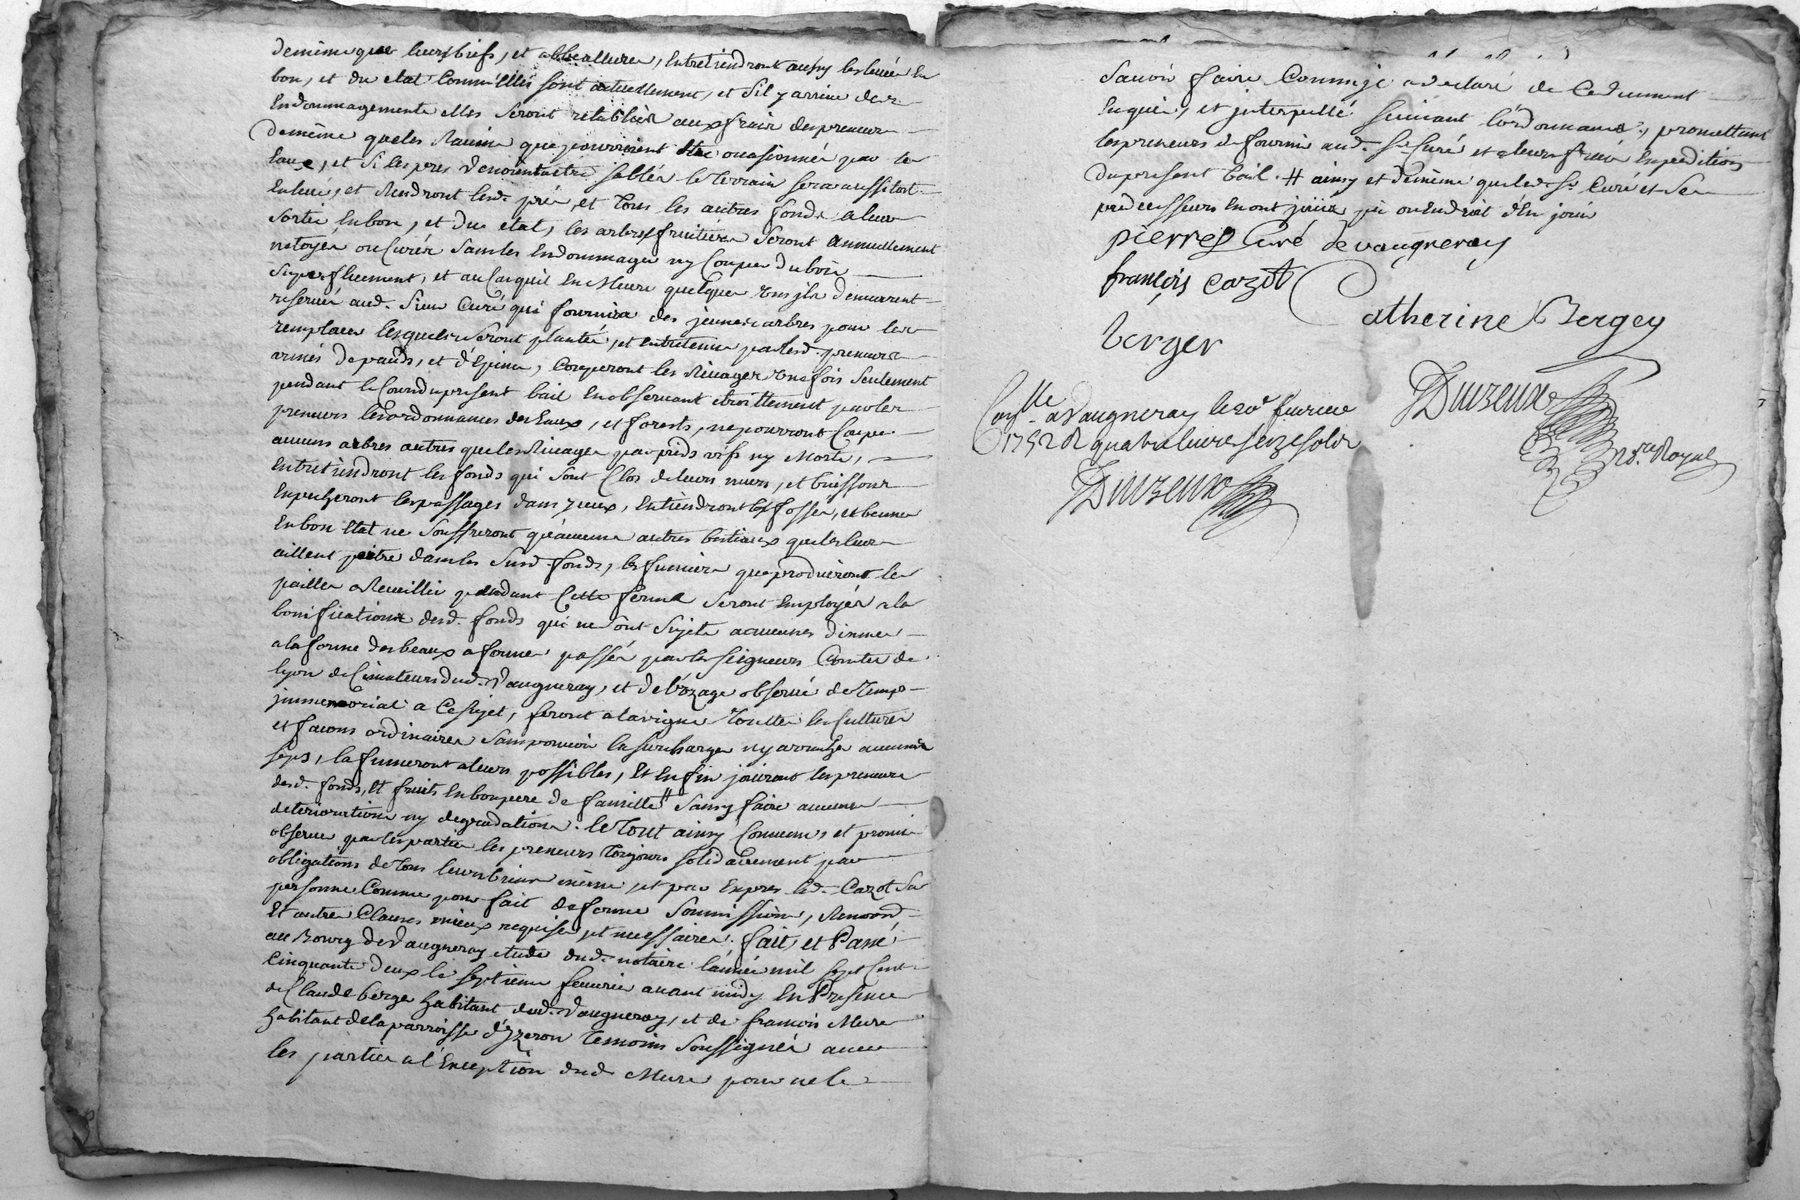 demême que leurs biefs, et abbeallures, Entretiendront aussy les livée En
bon, et du etat Comm'Elles sont actuellement, et sil y arrive des
Endommagements elles seront retablies aux frais des preneurs
demême que les Ravins que pourroient Etre ocasionnés par les
Eaux, et si les prés venoient a être sablés le terrain sera aussitost
Enlevé, et Rendront lesd. prés, et tous les autres fonds a leur
sortie En bon, et du etat, les arbres fruitiers seront annuellement
netoyés ou Curés sans les Endommager ny Couper du bois
superfluement, et au Cas quil En Meure quelques Uns ils demeurent
reservés aud. Sieur Curé qui fournira des jeunes arbres pour les
remplacer lesquels seront plantés, et entretenus par lesd. preneurs
armés de pauds, et d'Epines, Couperont les Rivages Une fois seulement
pendant le Cours du present bail En observant étroittement par les
preneurs les ordonnances des Eaux, et forests, ne pourront Couper
aucuns arbres autres que les Rivages par pieds vifs ny Morts,
Entretiendront les fonds qui sont Clos de leurs murs, et buissons
Empecheront les passages dans yceux, Entiendront les fossés, et bennes
En bon Etat ne souffriront qu'aucuns autres bestiaux que les leurs
aillent paître dans les Susd. fonds, les fumiers que produiront les
pailles a Recueillir pendant Cette ferme seront Employés a la
bonification desd. fonds qui ne sont sujets a aucunes dixmes
a la forme des beaux a ferme passés par les seigneurs Comtes de
lyon deCimateurs dud. Vaugneray, et de l'Uzage observé de temps
jmmemorial a Ce sujet, feront a la vigne toutes les Cultures
et façons ordinaires sans pouvoir la surcharger ny arracher aucuns
seps, la fumeront a leurs possibles, Et Enfin jouiront les preneurs
desd. fonds, Et fruits En bon pere de famille # sans y faire aucunes
deteriorations ny degradations. le tout ainsy Convenu, et promis
observer par les parties les preneurs toujours solidairement par
obligations de tous leurs biens même, et par Expres led. Cazot sa
personne Comme pour fait de ferme Soumissions, Renond.
Et autres Clauses mieux requises, et necessaires. fait, et Passé
au Bourg de Vaugneray etude dud. notaire l'année mil sept Cent
Cinquante deux le septieme fevrier avant midy En Presence
de Claude berger habitant dud. Vaugneray, et de francois Mure
habitant de la parroisse d'Yzeron temoins soussignés avec
les parties a l'Exception dud. Mure pour ne le
savoir faire Comm'jl a declaré de Ce duement
Enquis, et jnterpellé suivant l'ordonnance, promettant
les preneurs de fournir aud. Sr. Curé et a leurs frais Expedition
du present bail. # ainsy et demême que led. Sr. Curé et ses
predecesseurs En ont joui ou En droit d'En jouir
pierres Curé de vaugneray
françois cazot
Catherine Bergey
berger
Duvzeux
Nore Royal
Conlle. a Vaugneray le 20e fevrier
1752 R quatre livres seize sols
Duvzeux